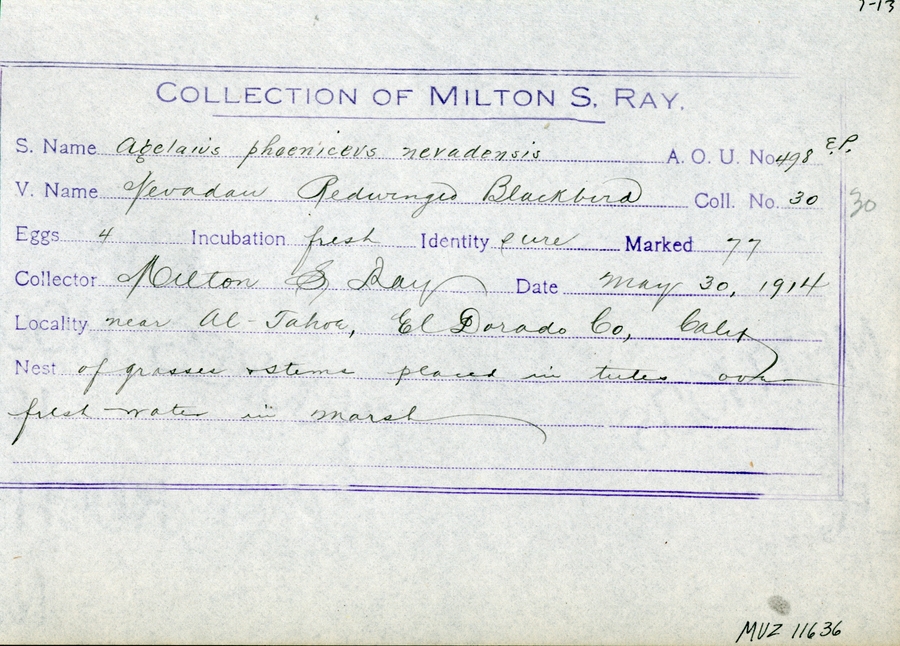 7-13
COLLECTION OF MILTON S. RAY.
S. Name Agelaius phoeniceus nevadensis A. O. U. No. 498 E.P.
V. Name Nevadan Redwinged Blackbird Coll. No. 30 30
Eggs 4 Incubation fresh Identity sure Marked 77
Collector Milton S. Ray Date May 30, 1914
Locality near Al-Tahoe, El Dorado Co, Calif
Nest of grasses & stems placed in tules over
fresh-water in marsh
MVZ 11636